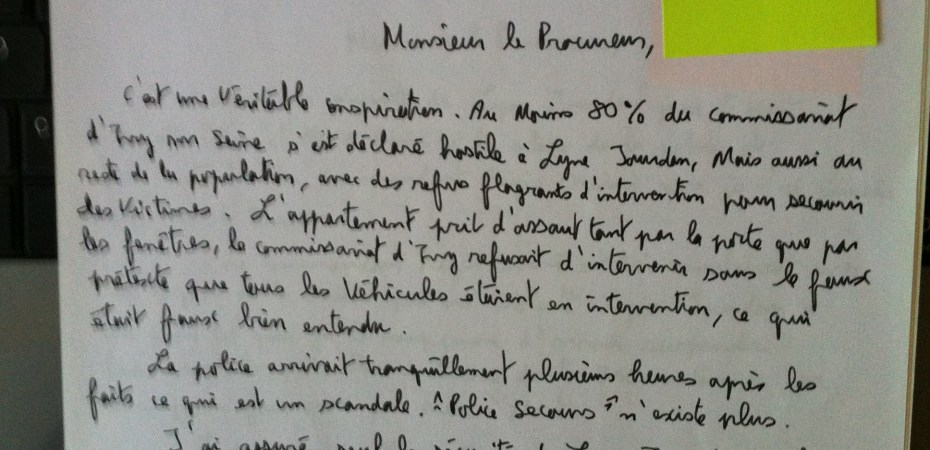 Monsieur le Procureur,
C'est une véritable conspiration. Au Moins 80% du commissariat
d'Ivry sur Seine s'est déclaré hostile à Lyne Jourdan, Mais aussi au
reste de la population, avec des refus flagrants d'intervention pour secourir
des Victimes. L'appartement prit d'assaut tant par la porte que par
les fenêtres, le commissariat d'Ivry refusait d'intervenir sous le faux
prétexte que tous les véhicules étaient en intervention, ce qui
était faux bien entendu.
La police arrivait tranquillement plusieurs heures après les
faits ce qui est un scandale. "Police Secours" n'existe plus.
J'ai assuré seul la